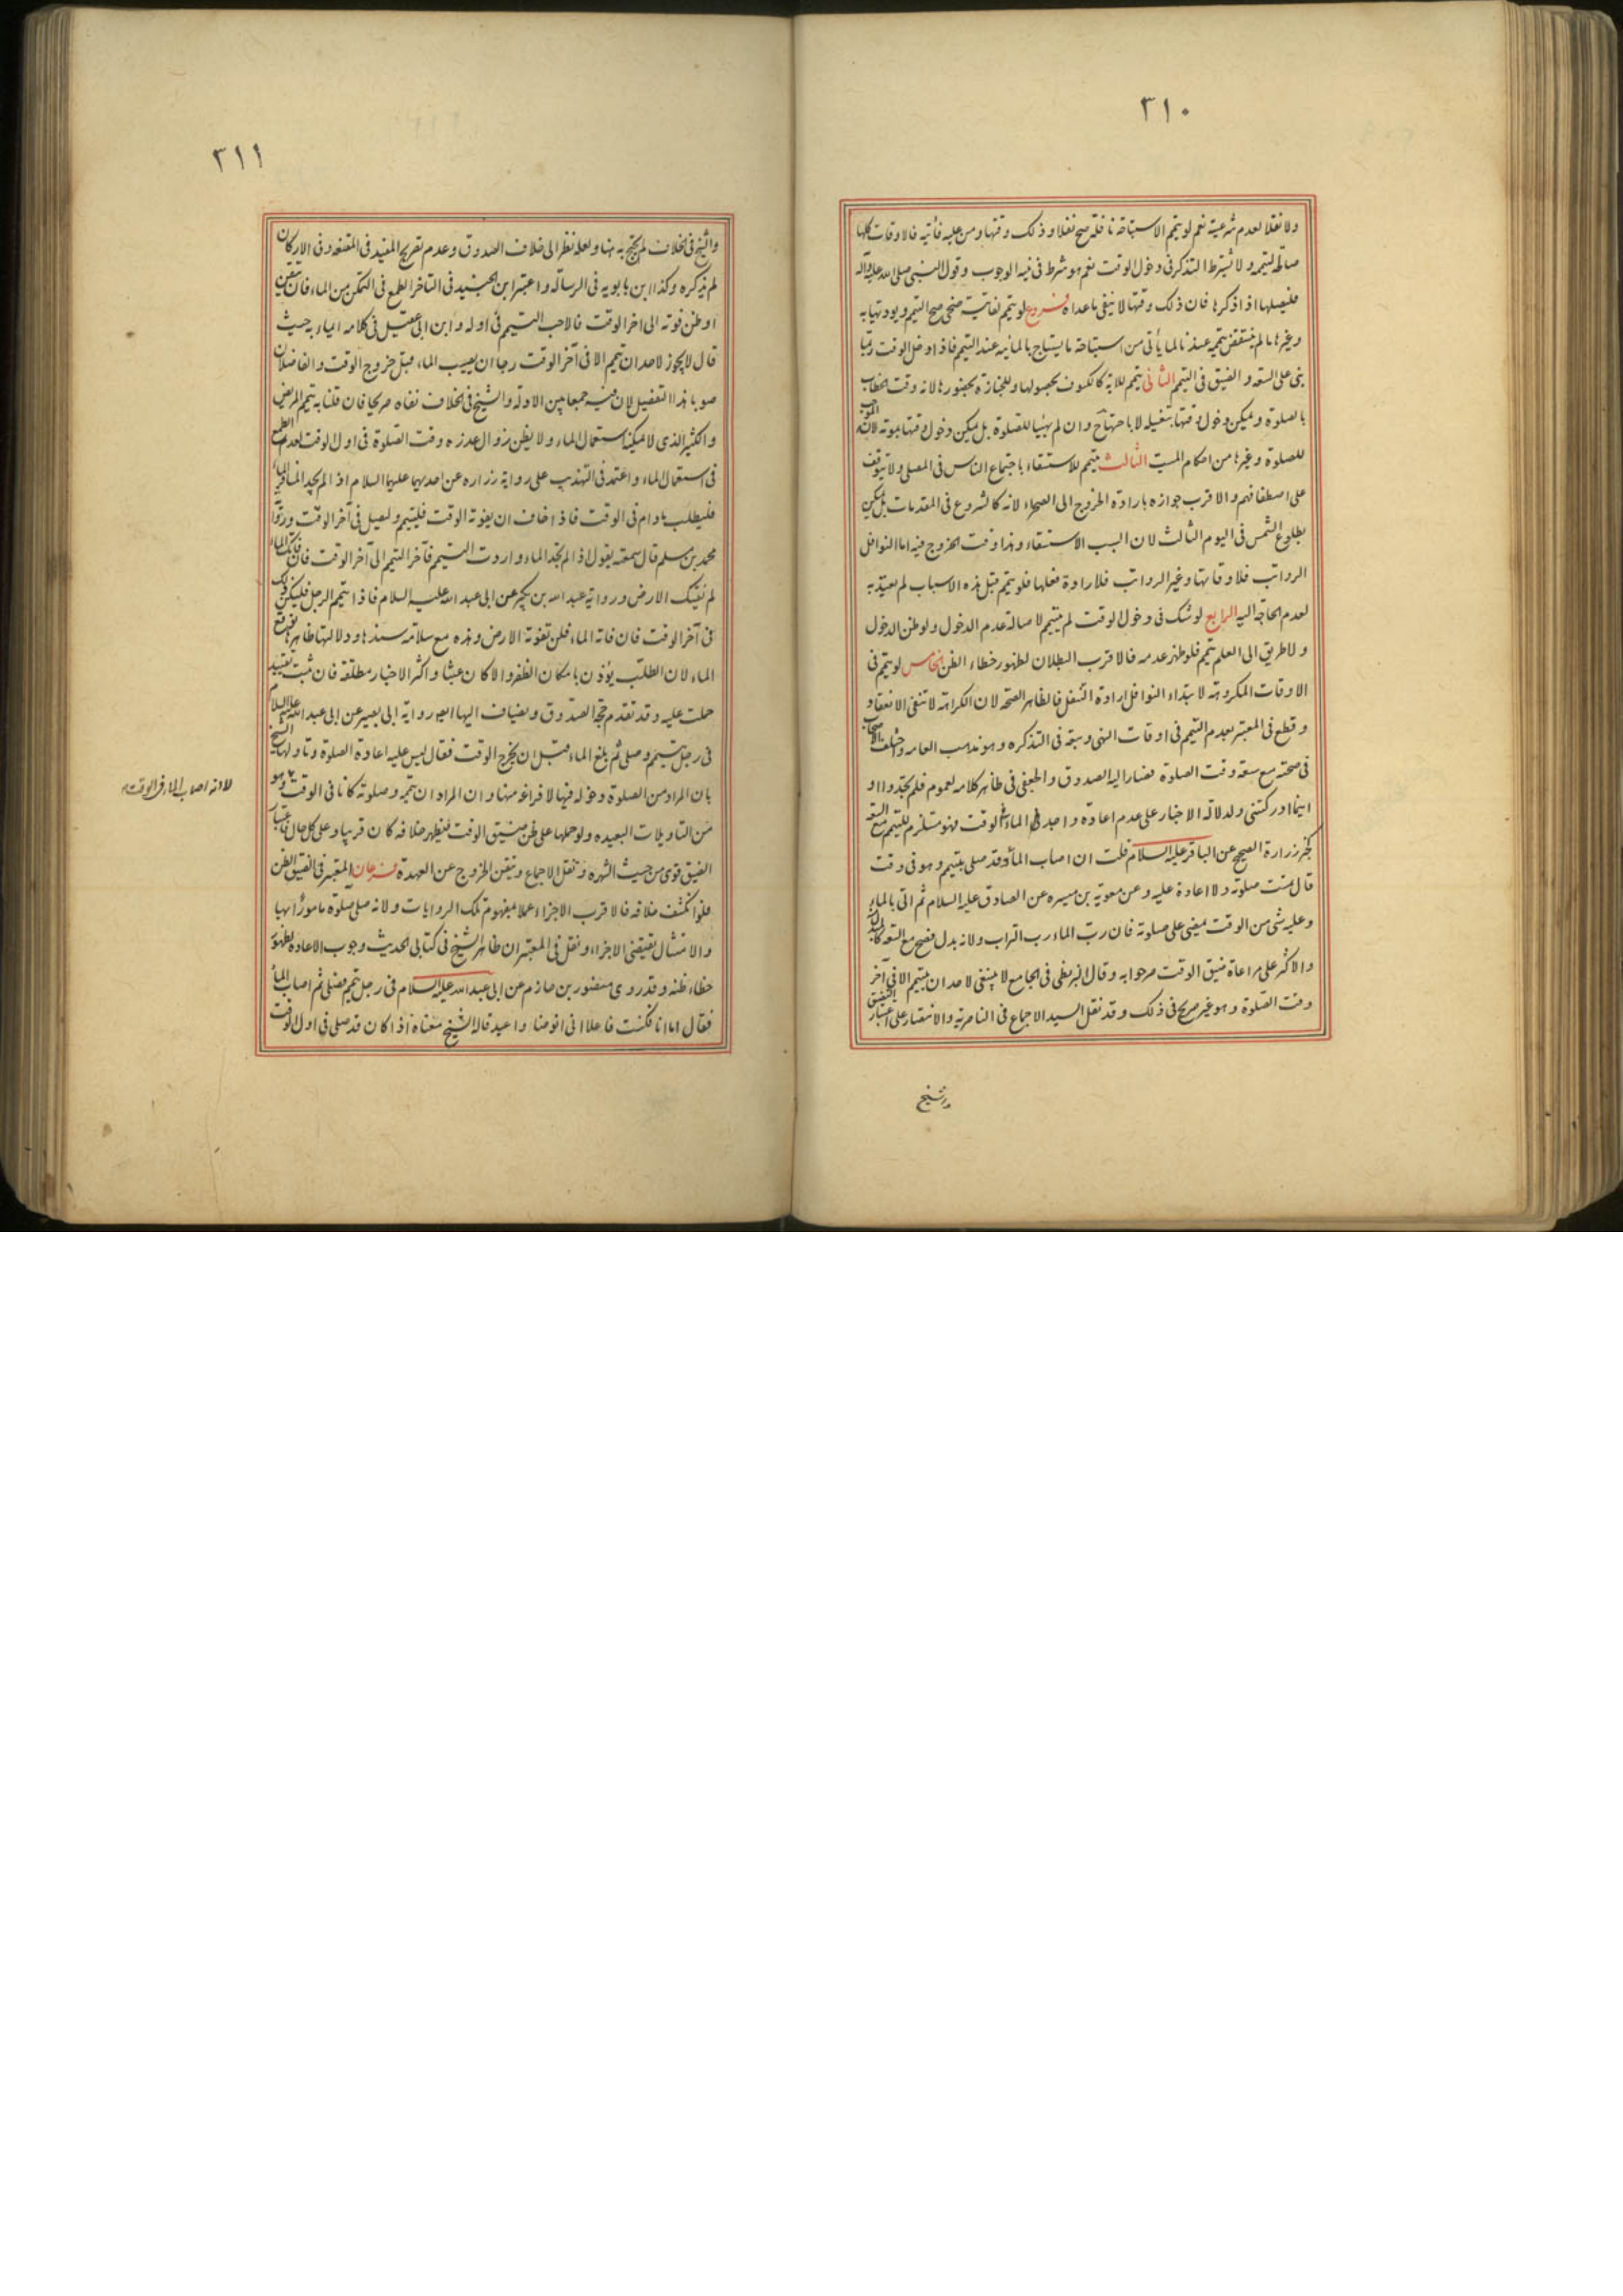 ٣١٠
ولا نفلا لعدم شرعيته نعم لو تيمم لاستباحة نافلة صح نفلا وذلك وقتها ومن عليه فائتة فالاوقات كلها
صالحة لتيممه ولا يشترط التذكر في دخول الوقت نعم هو شرط في نية الوجوب وقول النبي صلى الله عليه وآله
فليصلها اذا ذكرها فان ذلك وقتها لا ينفي ما عداه فروع لو تيمم لفائتة ضحى صح التيمم ويؤدي الظهر به
وغيرها ما لم ينتقض تيممه عندنا لما يأتي من استباحة ما يستباح بالمائية عند التيمم فاذا دخل الوقت
بني على السعة والضيق في التيمم الثاني يتيمم للاية كالكسوف بحصولها وللجنازة بحضورها لانه وقت الخطاب
بالصلوة ويمكن دخول وقتها بتغسيله لاباحتها ح وان لم يهيأ للصلوة بل يمكن دخول وقتها بموته لانه الموجب
للصلوة وغيرها من احكام الميت الثالث يتيمم للاستسقاء باجتماع الناس في المصلى ولا يتوقف
على اصطفافهم والاقرب جوازه بارادة الخروج الى الصحراء لانه كالشروع في المقدمات بل يمكن
بطلوع الشمس في اليوم الثالث لان السبب الاستسقاء وهذا وقت الخروج فيه اما النوافل
الرواتب فلاوقاتها وغير الرواتب فلارادة فعلها فلو تيمم قبل هذه الاسباب لم يعتد به
لعدم الحاجة اليه الرابع لو شك في دخول الوقت لم يتيمم لاصالة عدم الدخول ولو ظن الدخول
ولا طريق الى العلم تيمم فلو ظهر عدمه فالاقرب البطلان لظهور خطاء الظن الخامس لو تيمم في
الاوقات المكروهة لابتداء النوافل لارادة التنفل فالظاهر الصحة لان الكراهة لا تنفي الانعقاد
وقطع في المعتبر بعدم التيمم في اوقات النهي وتبعه في التذكره وهو مذهب العامه واختلف الاصحاب
في صحته مع سعة وقت الصلوة فصار اليه الصدوق والجعفي في ظاهر كلامه لعموم فلم تجدوا او
اينما ادركتني ولدلالة الاخبار على عدم اعادة واجد الماء في الوقت فهو مستلزم للتيمم مع السعة
كخبر زرارة الصحيح عن الباقر عليه السلام قلت ان اصاب الماء وقد صلى بتيمم وهو في وقت
قال تمت صلوته ولا اعادة عليه وعن معوية بن ميسره عن الصادق عليه السلام ثم اتى بالماء
وعليه شئ من الوقت يمضي على صلوته فان رب الماء رب التراب ولانه بدل فصح مع السعة كالمبدل
والاكثر على مراعاة ضيق الوقت مرجوا به وقال البزنطي في الجامع لا ينبغي لاحد ان يتيمم الا في آخر
وقت الصلوة وهو غير صريح في ذلك وقد نقل السيد الاجماع في الناصرية والانتصار على اعتبار التضيق
والشيخ
٣١١
والشيخ في الخلاف لم يحتج به هنا ولعله نظر الى خلاف الصدوق وعدم تصريح المفيد في المقنعه وفي الاركان
لم يذكره وكذا ابن بابويه في الرسالة واعتبر ابن الجنيد في التاخر الطمع في التمكن من الماء فان تيقن
او ظن فوته الى اخر الوقت فالاحب التيمم في اوله وابن ابي عقيل في كلامه ايماء به حيث
قال لا يجوز لاحد ان تيمم الا في آخر الوقت رجا ان يصيب الماء قبل خروج الوقت والفاضلان
صوبا هذا التفصيل لان فيه جمعا بين الادلة والشيخ في الخلاف نفاه صريحا فان قلنا به تيمم المريض
والكثير الذي لا يمكنه استعمال الماء ولا يظن زوال عذره وقت الصلوة في اول الوقت لعدم الطمع
في استعمال الماء واعتمد في التهذيب على رواية زراره عن احديهما عليهما السلام اذا لم يجد المسافر الماء
فليطلب ما دام في الوقت فاذا خاف ان يفوته الوقت فليتيمم وليصل في آخر الوقت ورواية
محمد بن مسلم قال سمعته يقول اذا لم تجد الماء واردت التيمم فاخر التيمم الى آخر الوقت فان فاتك الماء
لم تفتك الارض ورواية عبد الله بن بكير عن ابي عبد الله عليه السلام فاذا تيمم الرجل فليكن ذلك
في آخر الوقت فان فاته الماء فلن تفوته الارض وهذه مع سلامة سندها ودلالتها ظاهرها توقع
الماء لان الطلب يؤذن بامكان الظفر والا كان عبثا واكثر الاخبار مطلقة فان ثبت تقييد
حملت عليه وقد تقدم حجة الصدوق ويضاف اليها ايضا رواية ابي بصير عن ابي عبد الله عليه السلام
في رجل تيمم وصلى ثم بلغ الماء قبل ان يخرج الوقت فقال ليس عليه اعادة الصلوة وتاولها الشيخ
بان المراد من الصلوة دخوله فيها لا فراغه منها وان المراد ان تيممه وصلوته كانا في الوقت وهو
من التاويلات البعيده ولو حملها على ظن ضيق الوقت فيظهر خلافه كان قريبا وعلى كل حال فاعتبار
الضيق قوي من حيث الشهرة ونقل الاجماع وتيقن الخروج عن العهدة فرعان المعتبر في الضيق الظن
فلو انكشف خلافه فالاقرب الاجزاء عملا بمفهوم تلك الروايات ولانه صلى صلوة مامورا بها
والامتثال يقتضي الاجزاء ونقل في المعتبر ان ظاهر الشيخ في كتابي الحديث وجوب الاعادة لظهور
خطاء ظنه وقد روى منصور بن حازم عن ابي عبد الله عليه السلام في رجل تيمم فصلى ثم اصاب الماء
فقال اما انا فكنت فاعلا اني اتوضا واعيد قال الشيخ معناه اذا كان قد صلى في اول الوقت
لانه اصاب الماء في الوقت